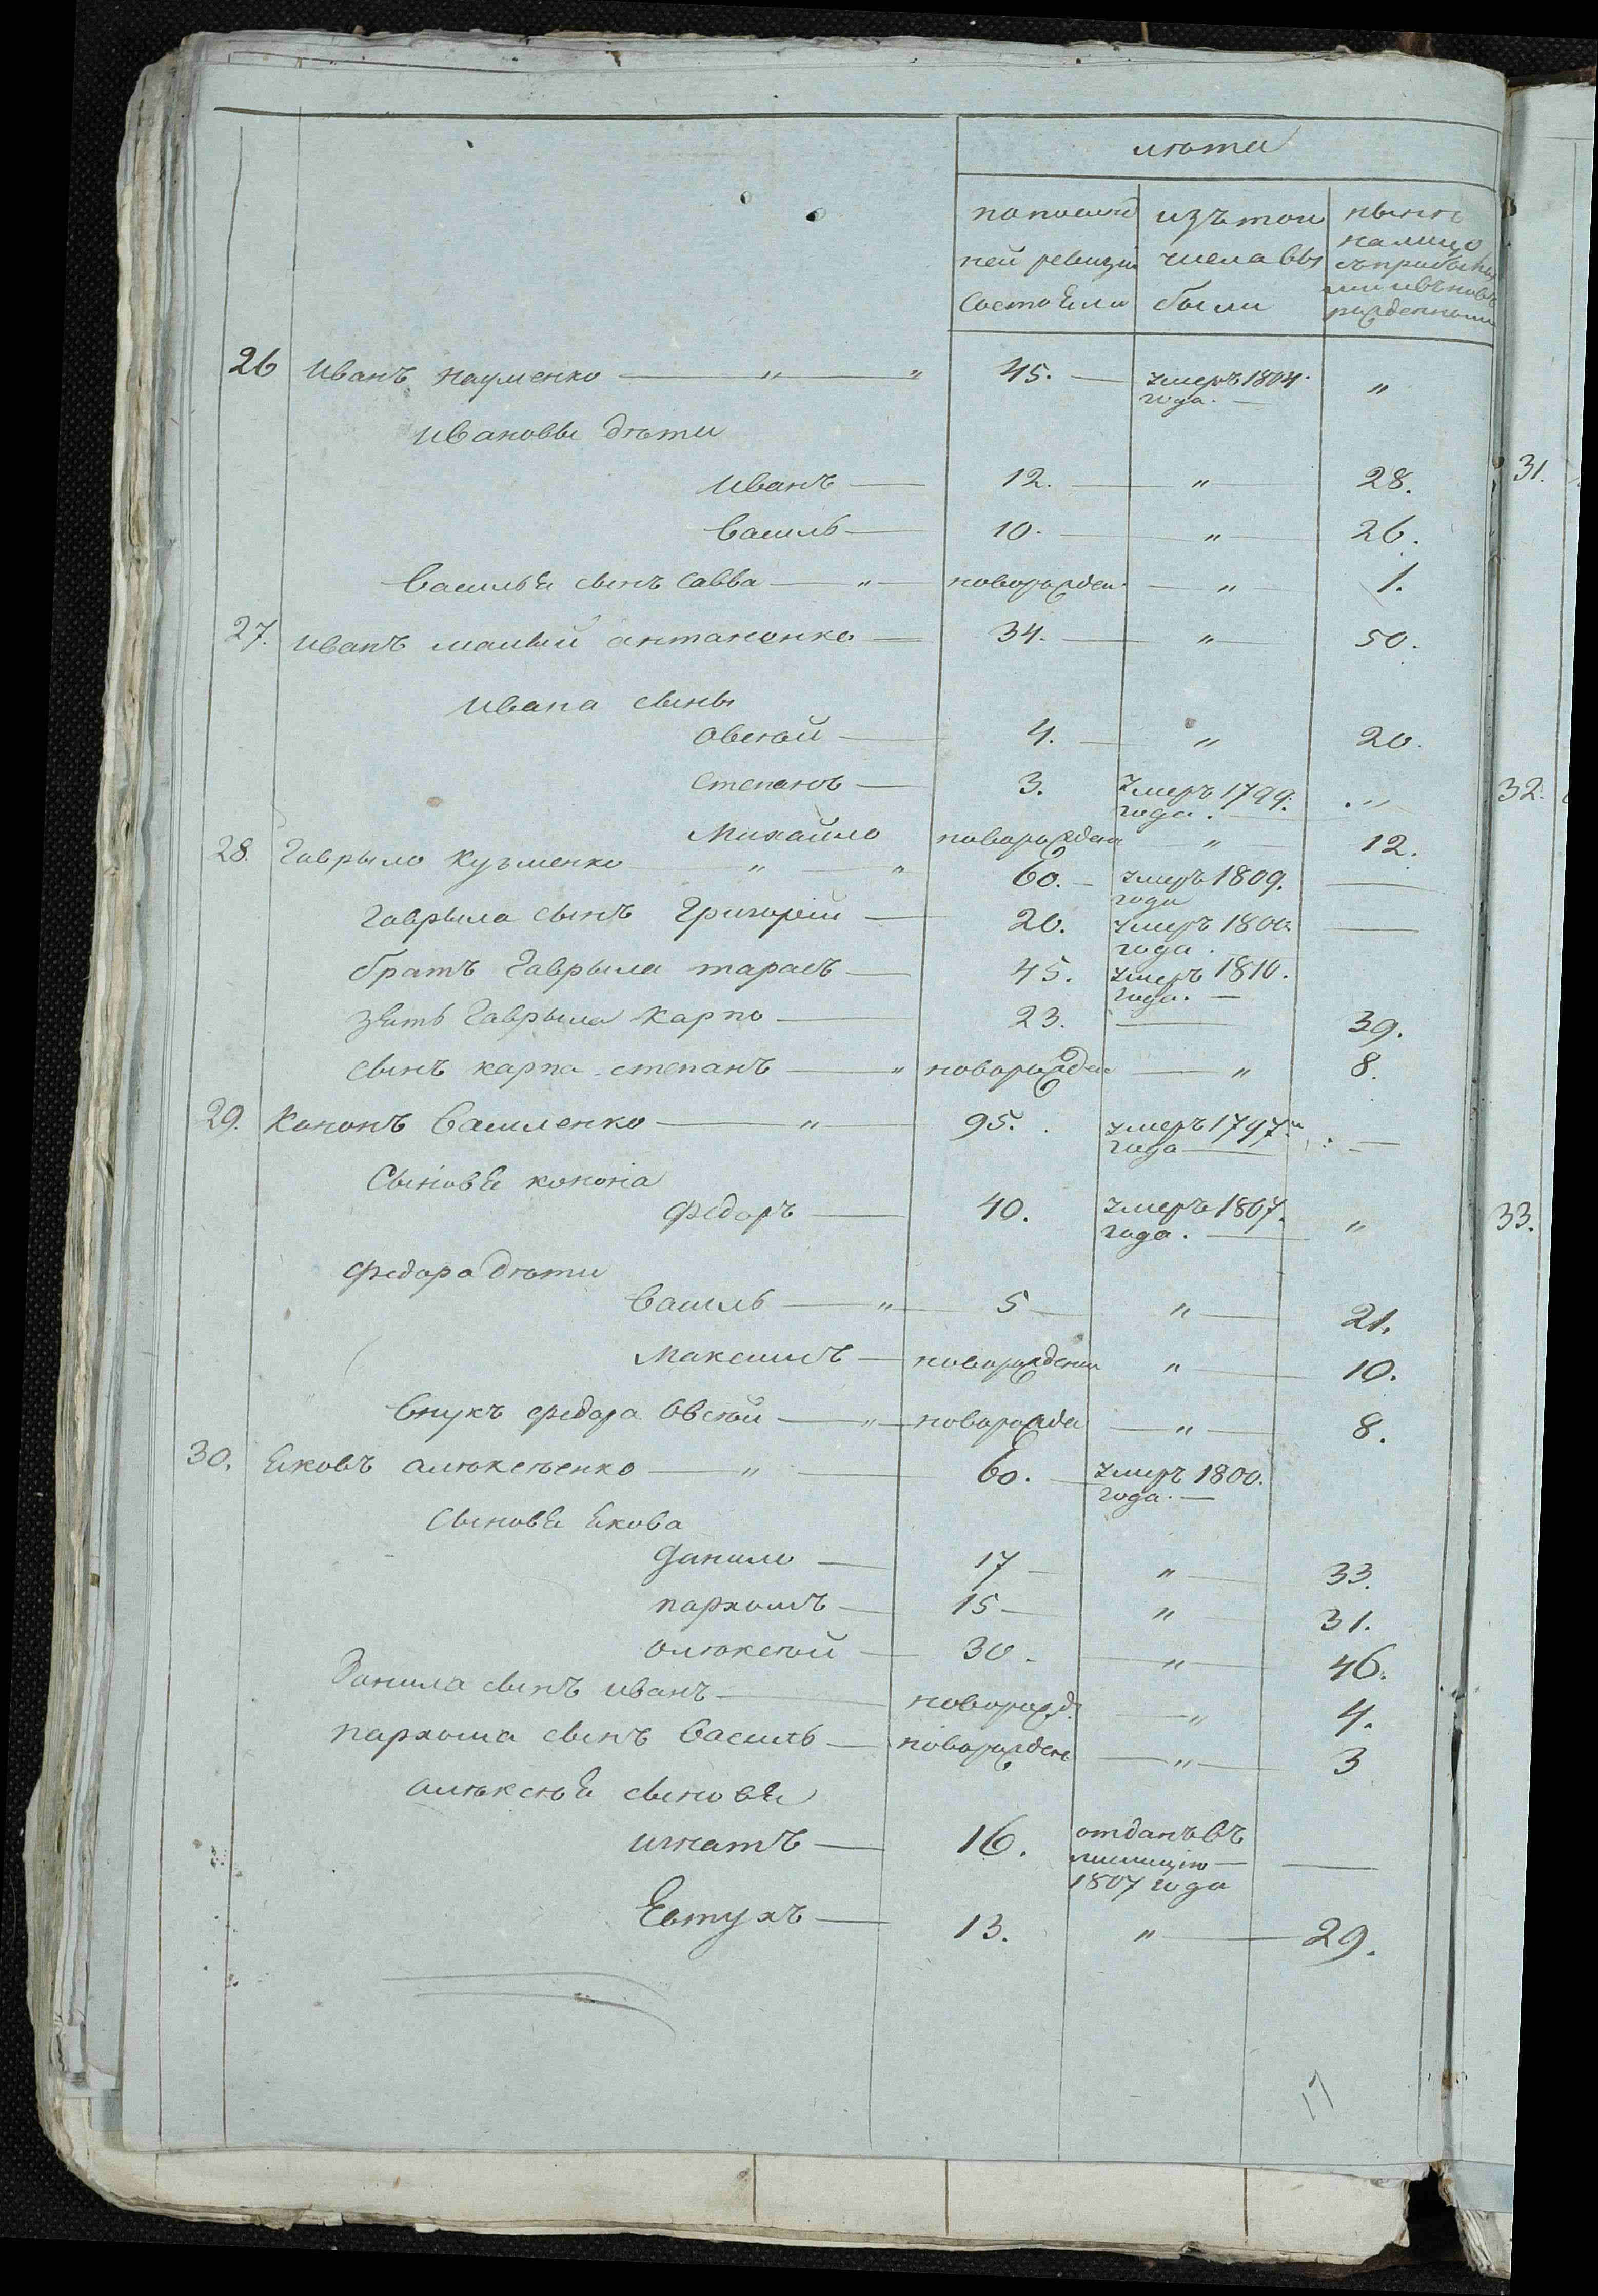 лѣта
по послед изъ тои нынѣ
ней ревизіи числа вы на лицо
состоѣли были съ прибылы
ми и вновь
рожденными
26 Иванъ Науменко — „ — „ 45. — умеръ 1804. „
года. —
Ивановы дѣти
Иванъ — 12. — „ — 28.
Василь — 10. — „ — 26.
Василья сынъ Савва — „ — новорожден. — „ — 1.
27. Иванъ малый антаненко — 34. — „ — 50.
Ивана сыны
Овсѣй — 4. — „ 20.
Степанъ — 3. умеръ 1799. „
года. —
Михайло новорожден — „ — 12.
28. Гаврыло Кузменко — „ — „ 60. — умеръ 1809. —
года
Гаврыла сынъ Григорій — 20. умеръ 1800. —
года.
братъ Гаврыла тарасъ — 45. умеръ 1810.
года. —
зять Гаврыла Карпо — 23. — 39.
сынъ карпа степанъ — „ новорожден — „ 8.
29. Кононъ Василенко — „ — 95. умеръ 1797 —
года —
Сыновя конона
Федоръ — 40. умеръ 1807. „
года. —
Федора дѣти
Василь — „ — 5 — „ — 21.
Максимъ — новорожденн „ — 10.
Внукъ федора Овсѣй — „ — новорожде — „ — 8.
30. Яковъ алѣксѣенко — „ — 60. — умеръ 1800.
года. —
Сыновя якова
Данило — 17 — „ — 33.
пархомъ — 15 — „ — 31.
олѣксѣй — 30. — „ — 46.
Данила сынъ иванъ — новорожд. — „ 4.
пархома сынъ Василь — новорожден — „ — 3
алѣксѣя сыновя
игнатъ — 16. отданъ въ —
милицію —
1807 года
Евтухъ — 13. „ — 29.
17
31.
32.
33.